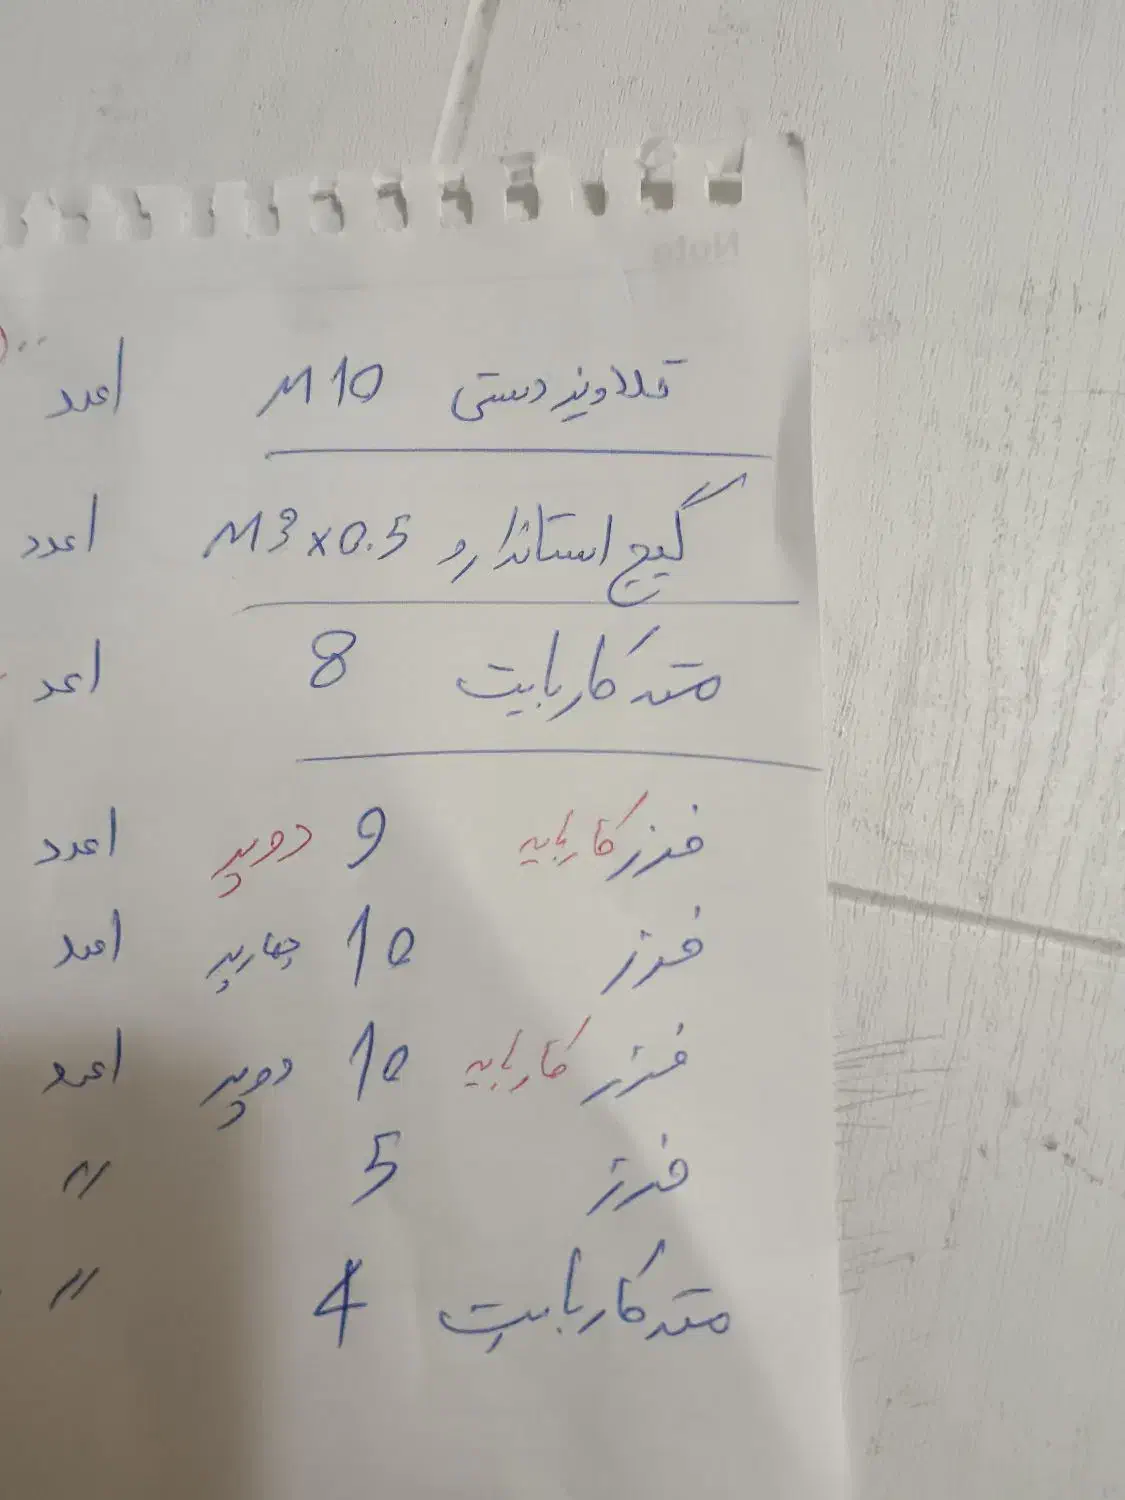 Note
قلاویز دستی M10 ۱عدد
گیج استاندارد M3×0.5 ۱عدد
مته کاربایت 8 ۱عدد
فرز کارباید 9 دوپر ۱عدد
فرز 10 چهارپر ۱عدد
فرز کارباید 10 دوپر ۱عدد
فرز 5 〃
مته کاربایت 4 〃